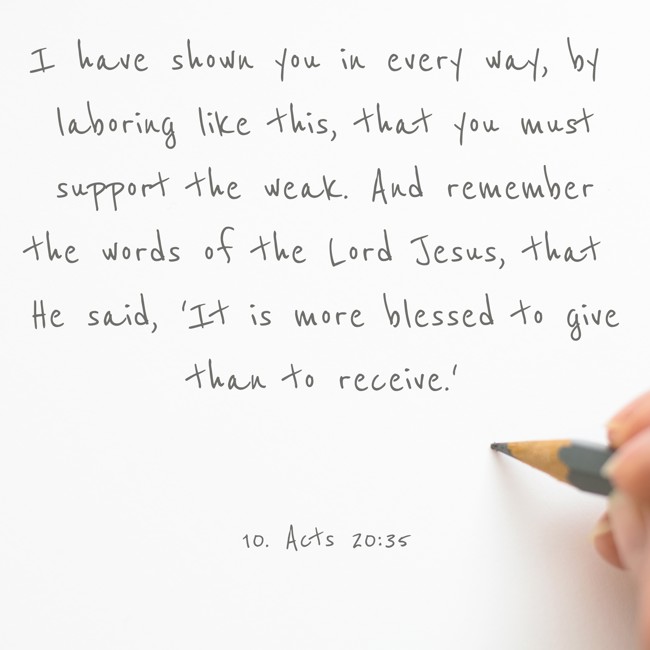 I have shown you in every way, by
laboring like this, that you must
support the weak. And remember
the words of the Lord Jesus, that
He said, 'It is more blessed to give
than to receive.'
10. Acts 20:35